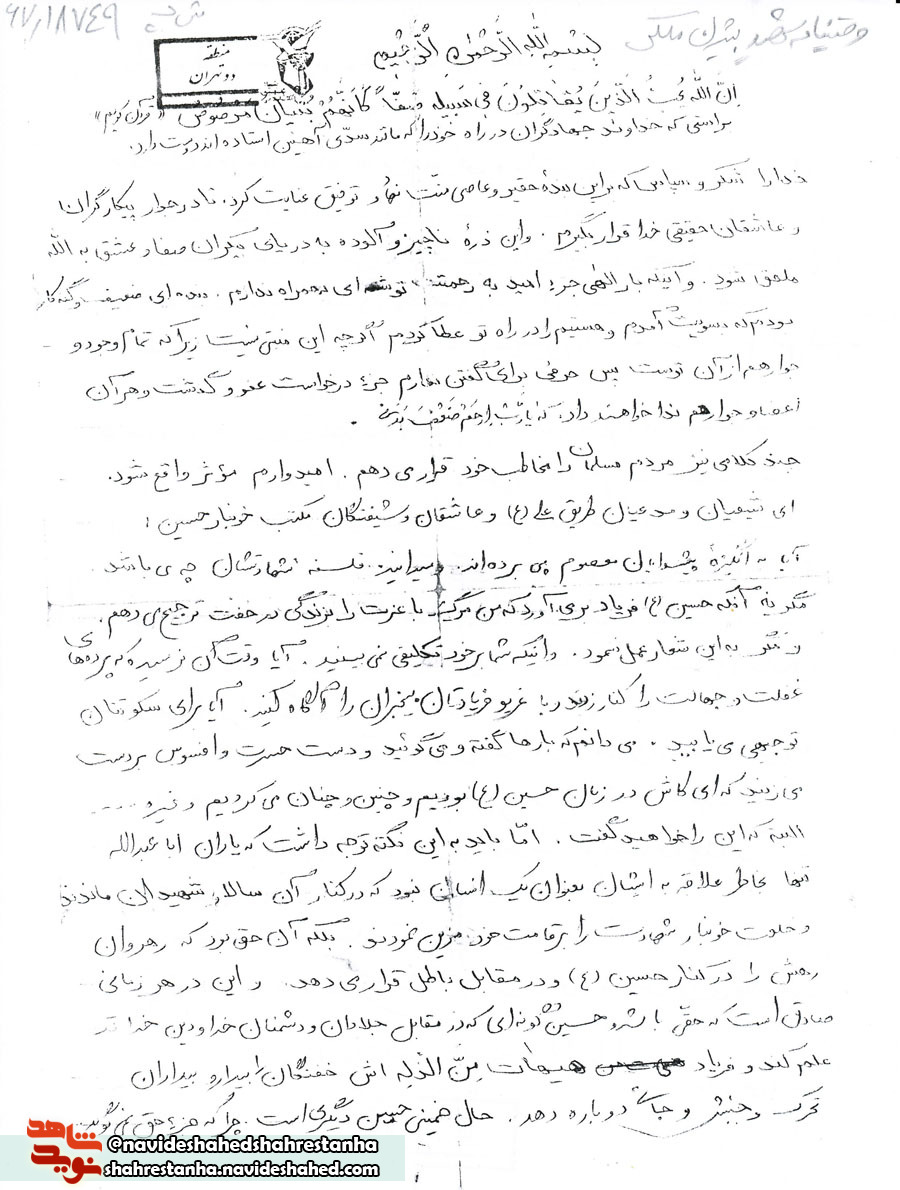 وصیتنامه شهید بیژن ملکی
ش ب ۶۷/۱۸۷۴۹
منطقه
دو تهران
بسم الله الرحمن الرحیم
اِنَّ اللّهَ یُحِبُّ الَّذینَ یُقاتِلُونَ فی سَبیلِهِ صَفّاً کَاَنَّهُمْ بُنْیانٌ مَرصُوصٌ « قرآن کریم »
براستی که خداوند جهادگران در راه خود را که مانند سدّی آهنین استاده اند دوست دارد.
خدا را شکر و سپاس که براین بندهٔ حقیر و عاصی منت نهاد و توفیق عنایت کرد. تا در جوار پیکارگران
و عاشقان حقیقی خدا قرار بگیرم. و این ذرهٔ ناچیز و آلوده به دریای بیکران صفا و عشق به الله
ملحق شود. و اینکه بار الهی جزء امید به رحمتت توشه ای به همراه ندارم. بنده ای ضعیف و گنه کار
بودم که بسویت آمدم و هستیم را در راه تو عطا کردم اگرچه این منتی نیست زیرا که تمام وجود و
جوارحم از آن توست پس حرفی برای گفتن ندارم جزء درخواست عفو و گذشت و هر آن
اعضاء و جوارحم ندا خواهند داد: که یا رَبِّ ارحَم ضَعْفَ بَدَنی.
چند کلامی نیز مردم مسلمان را مخاطب خود قرار می دهم. امیدوارم مؤثر واقع شود.
ای شیعیان و مدعیان طریق علی (ع) و عاشقان و شیفتگان مکتب خونبار حسین:
آیا به انگیزهٔ پیشوایان معصوم پی برده اند. و میدانید فلسفه شهادتشان چه می باشد
مگر نه آنکه حسین (ع) فریاد برمی آورد که من مرگ با عزت را بر زندگی در خفت ترجیح می دهم.
و نگر به این شعار عمل ننمود. و اینکه شما بر خود تکلیفی نمی بینید. آیا وقت آن نرسیده که پرده های
غفلت و جهالت را کنار زنید و با غریو فریادتان بیخبران را آگاه کنید. آیا برای سکوتتان
توجیهی می یابید. می دانم که بارها گفته و می گوئید و دست حسرت و افسوس بر دست
می زنید که ای کاش در زمان حسین (ع) بودیم و چنین و چنان می کردیم و غیره ....
البته که این را خواهید گفت. امّا باید به این نکته توجه داشت که یاران ابا عبدالله
تنها بخاطر علاقه به ایشان بعنوان یک انسان نبود که در کنار آن سالار شهیدان ماندند
و خلعت خونبار شهادت را بر قامت خود مزین نمودند. بلکه آن حق بود که رهروان
رهش را در کنار حسین (ع) و در مقابل باطل قرار می دهد. و این در هر زمانی
صادق است که حقّی باشد و حسین گونه ای که در مقابل جلادان و دشمنان خدا و دین خدا قد
علم کند و فریاد هیهات مِنّ الذله اش خفتگان را بیدار و بیداران
تحرک و جنبش و جانی دوباره دهد. حال خمینی حسین دیگری است. چرا که جزء حق نمی گوید.
شاهد
نوید
@navideshahedshahrestanha
shahrestanha.navideshahed.com